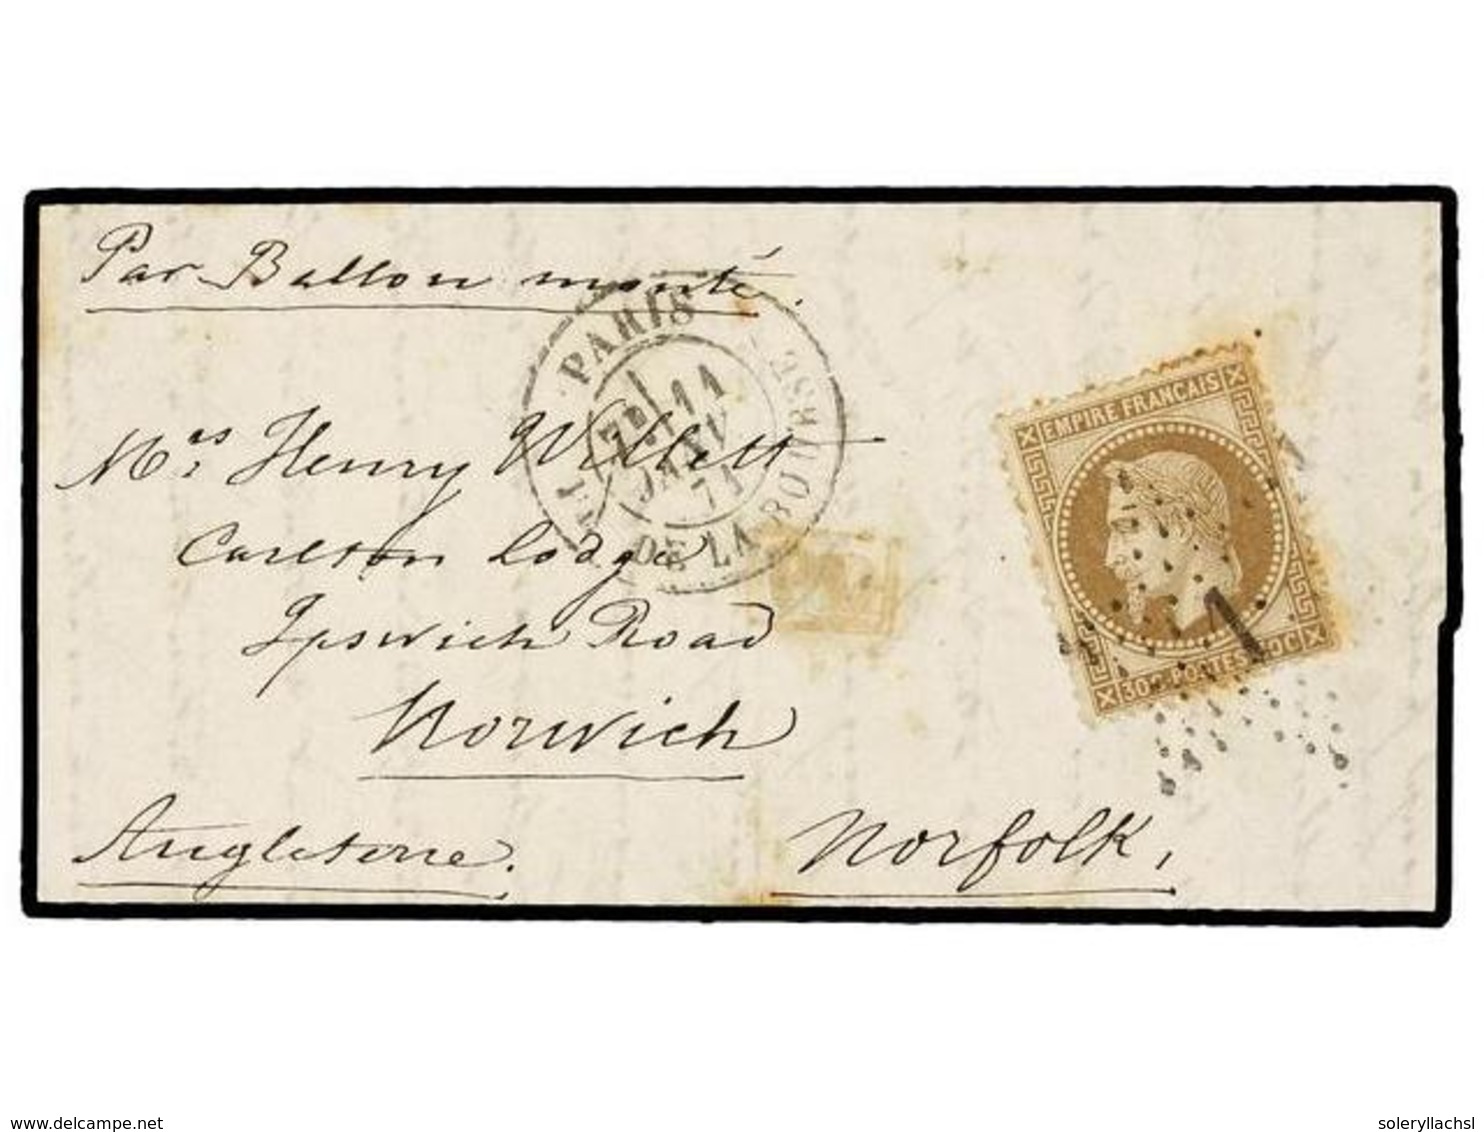 Par Ballon monté.
PARIS
11
JANV
71
DE LA BOURSE
EMPIRE FRANÇAIS
30C POSTES 30C
1
Mrs Henry Willett
Carlton Lodge
Ipswich Road
Norwich
Angleterre.
Norfolk,
delcampe.net
soleryllachsl